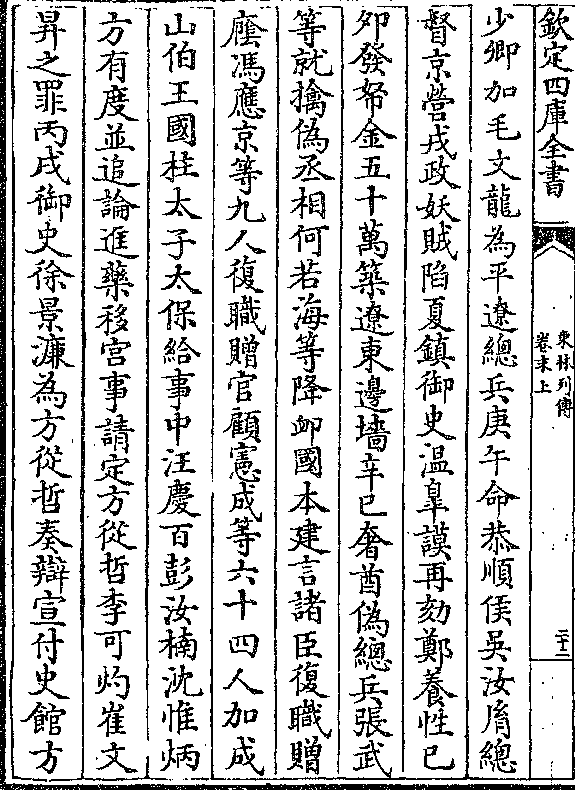 欽定四庫全書
東林列傳
卷末上
二十三
少卿加毛文龍為平遼總兵庚午命恭順侯吳汝𦙍總
督京營戎政妖賊陷夏鎮御史溫臯謨再劾鄭養性己
夘發帑金五十萬築遼東邊墻辛巳奢酋偽總兵張武
等就擒偽丞相何若海等降卹國本建言諸臣復職贈
廕馮應京等九人復職贈官顧憲成等六十四人加成
山伯王國柱太子太保給事中汪慶百彭汝楠沈惟炳
方有度並追論進藥移宮事請定方從哲李可灼崔文
昇之罪丙戌御史徐景濂為方從哲奏辯宣付史館方